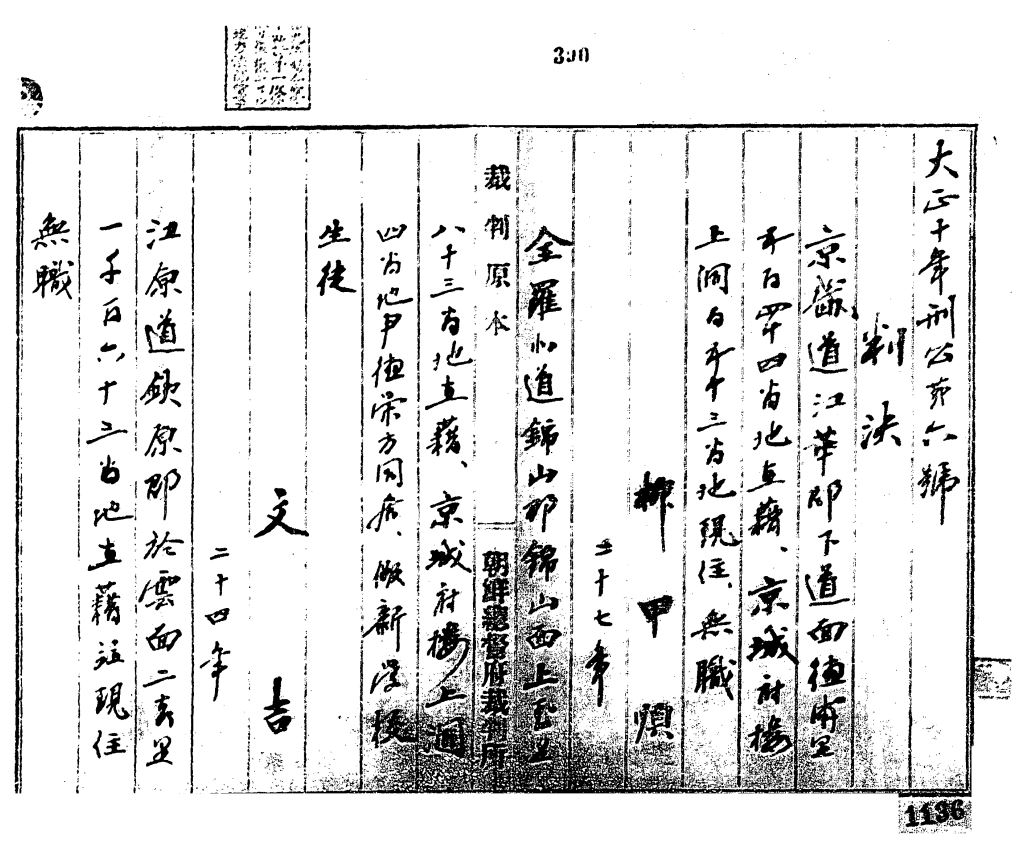 390
大正十年刑公第六號
判決
京畿道江華郡下道面德浦里
五百四十四番地在籍、京城府樓
上洞百五十三番地現住、無職
柳甲順
三十七年
全羅北道錦山郡錦山面上玉里
裁判原本 朝鮮總督府裁判所
八十三番地在籍、京城府樓上洞
四番地尹德榮方同居、儆新學校
生徒
文吉
二十四年
江原道鉄原郡於雲面二吉里
一千百六十三番地在籍並現住
無職
1136